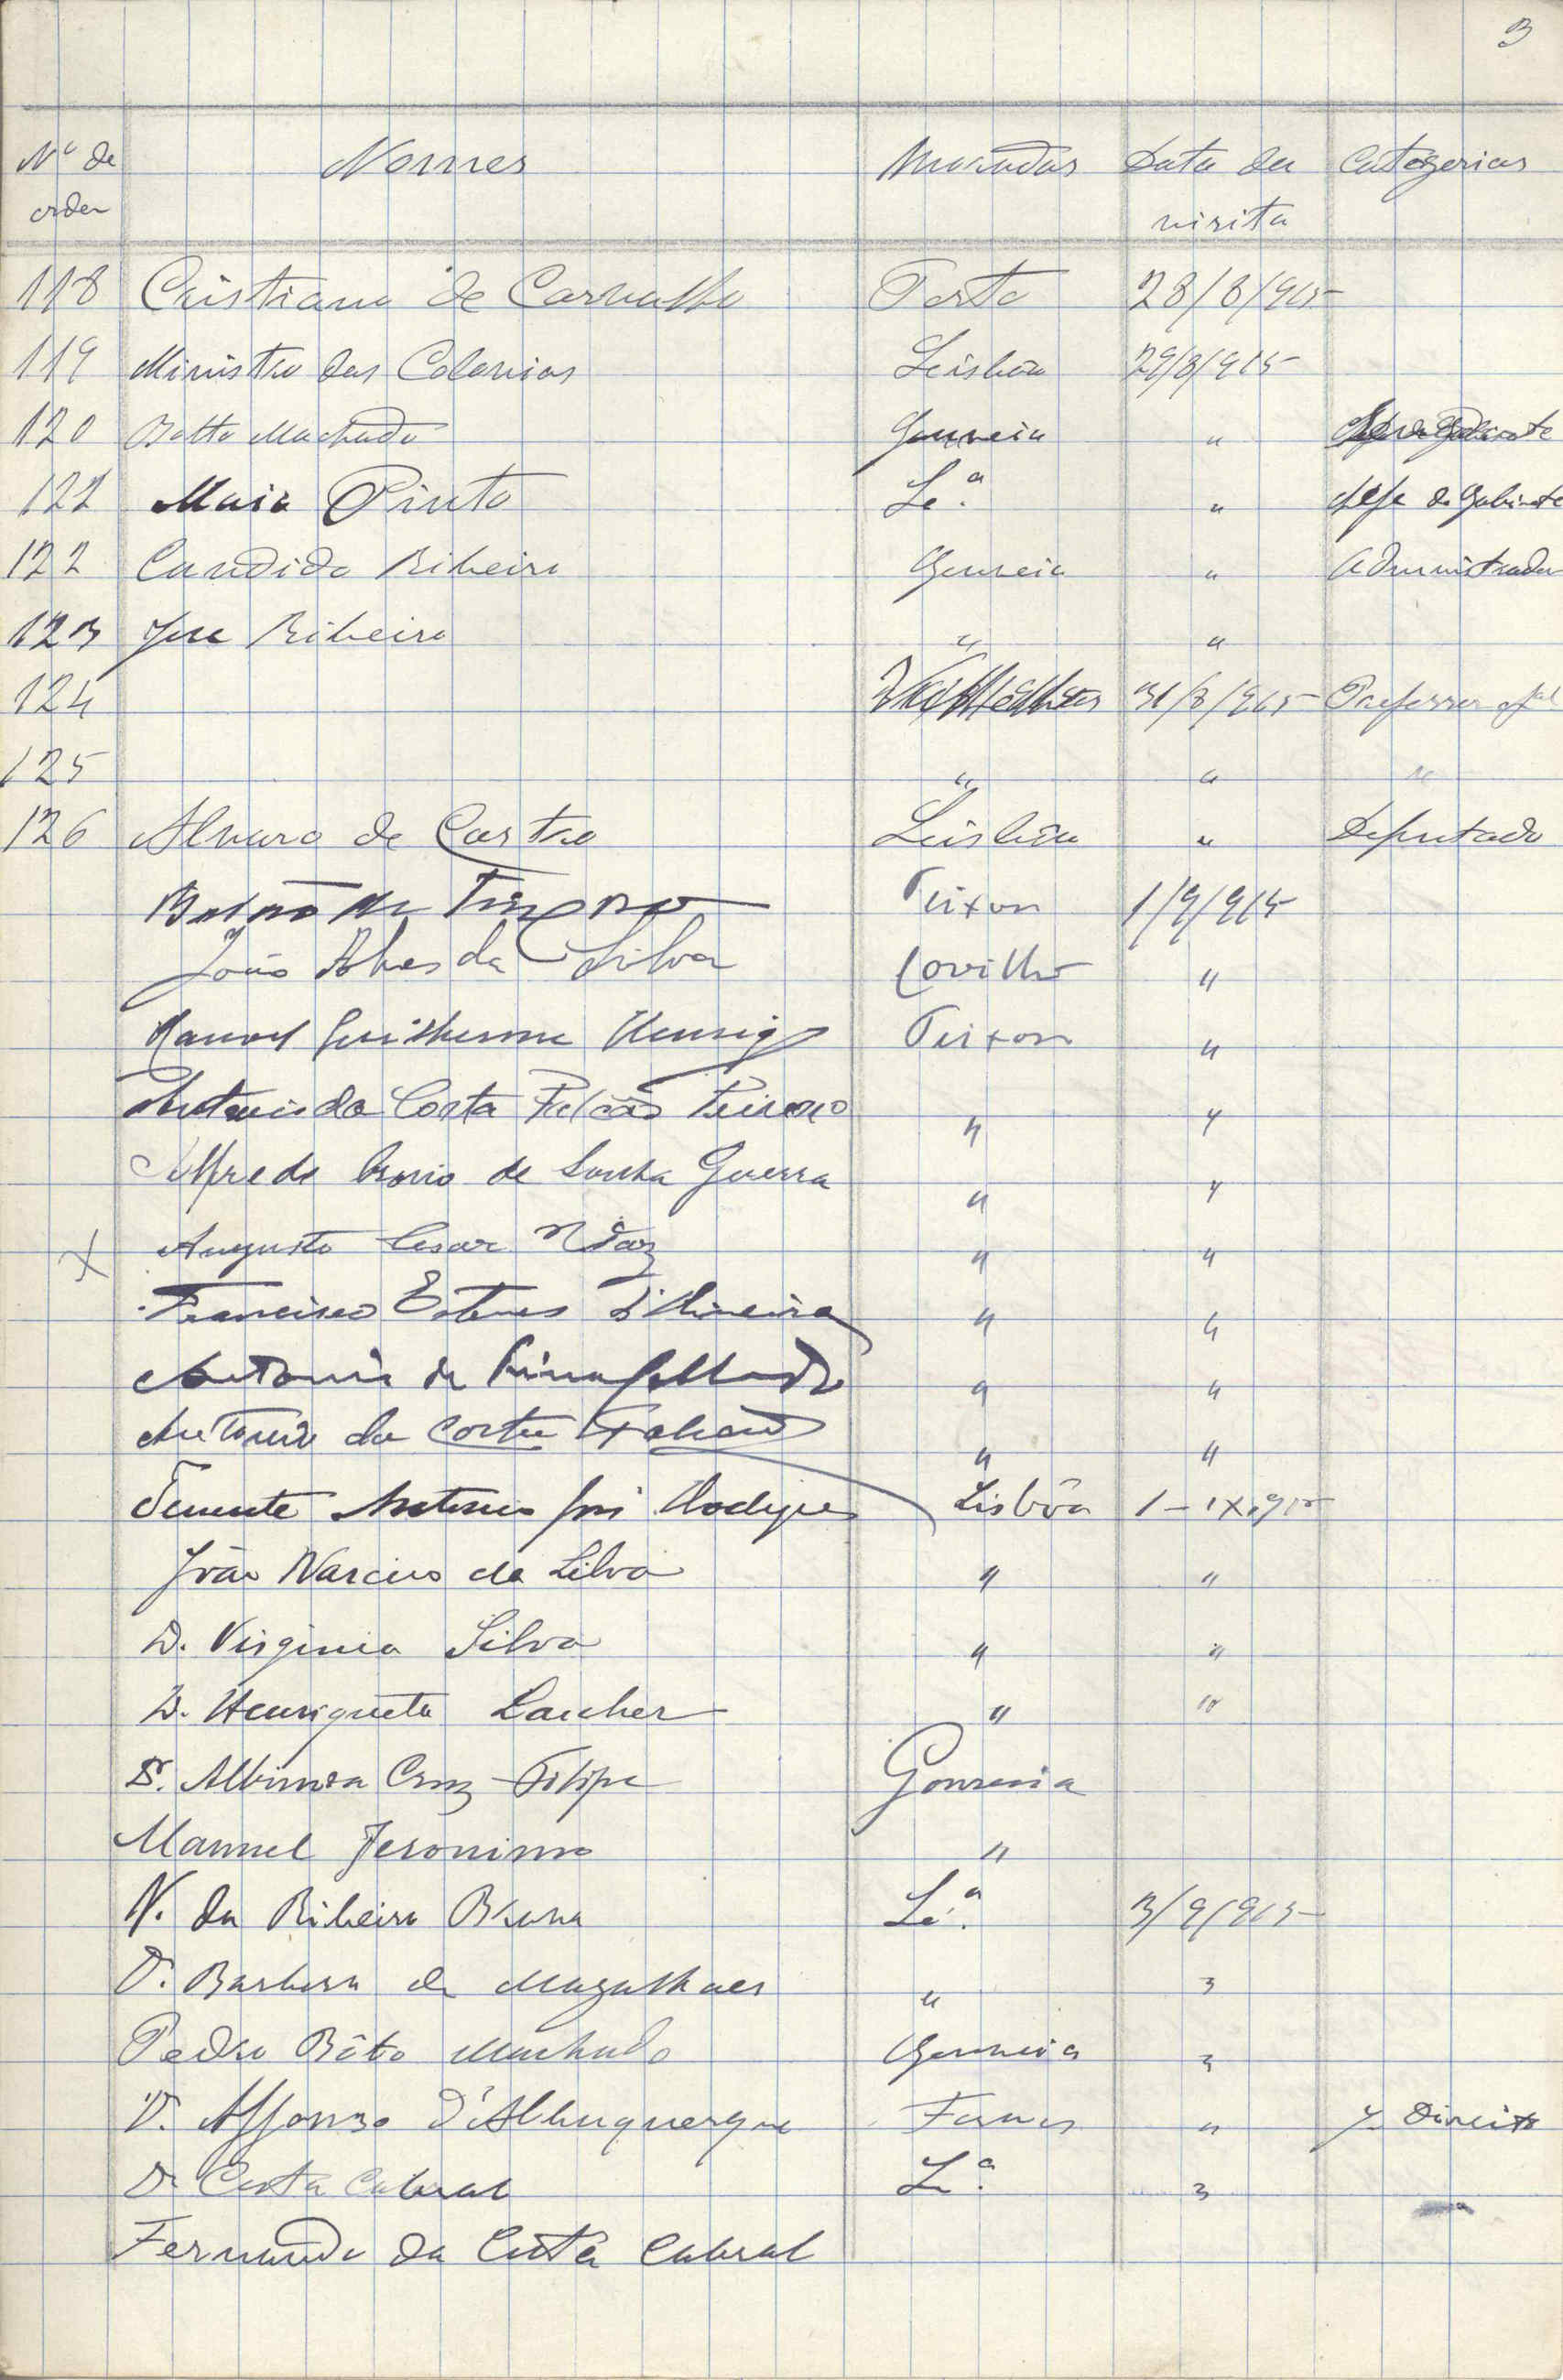 3
Nº de ordem Nomes Moradas Data da visita Categorias
118 Cristiano de Carvalho Porto 28/8/915
119 Ministro das Colonias Lisbôa 29/8/915
120 Botto Machado Gouveia "
121 Maia Pinto Lx.ª " chefe de Gabinete
122 Candido Ribeiro Gouveia " Administrador
123 José Ribeiro " "
124 31/8/915 Professor
125 " " "
126 Alvaro de Castro Lisbôa " Deputado
Teixoso 1/9/915
João Alves da Silva Covilhã "
Manoel Guilherme "
Antonio da Costa Falcão " "
Alfredo Osorio de Sousa Guerra " "
X Augusto Cesar " "
Francisco Esteves d'Oliveira " "
Antonio de " "
Antonio da Costa Falcão " "
Tenente Antonio José Rodrigues Lisbôa 1-IX-915
João Narciso da Silva " "
D. Virginia Silva " "
D. Henriqueta Larcher " "
D. Cruz Filipe Gouveia
Manuel Jeronimo "
N. da Ribeira Brava Lx.ª 3/9/915
D. Barbosa de Magalhaes " "
Pedro Bôto Machado Gouveia "
D. Affonso d'Albuquerque " Direito
Dr Costa Cabral Lx.ª "
Fernando da Costa Cabral